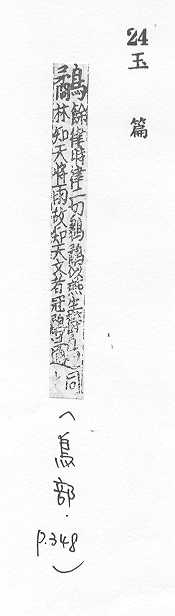 24
玉篇
鷸 餘律時律二切鷸鷸以燕生
林知天將雨故知天文者冠鷸
(鳥部.
p.348)